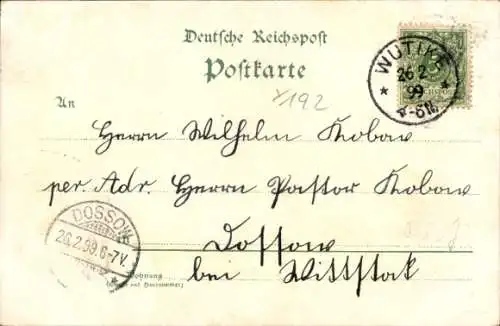 Deutsche Reichspost
Postkarte
WUTIKE
26 2
99
192
An
Herrn Wilhelm Kobow
per. Adr. Herrn Pastor Kobow
Dossow
bei Wittstok
DOSSOW
26.2.99.6-7V.
Wohnung